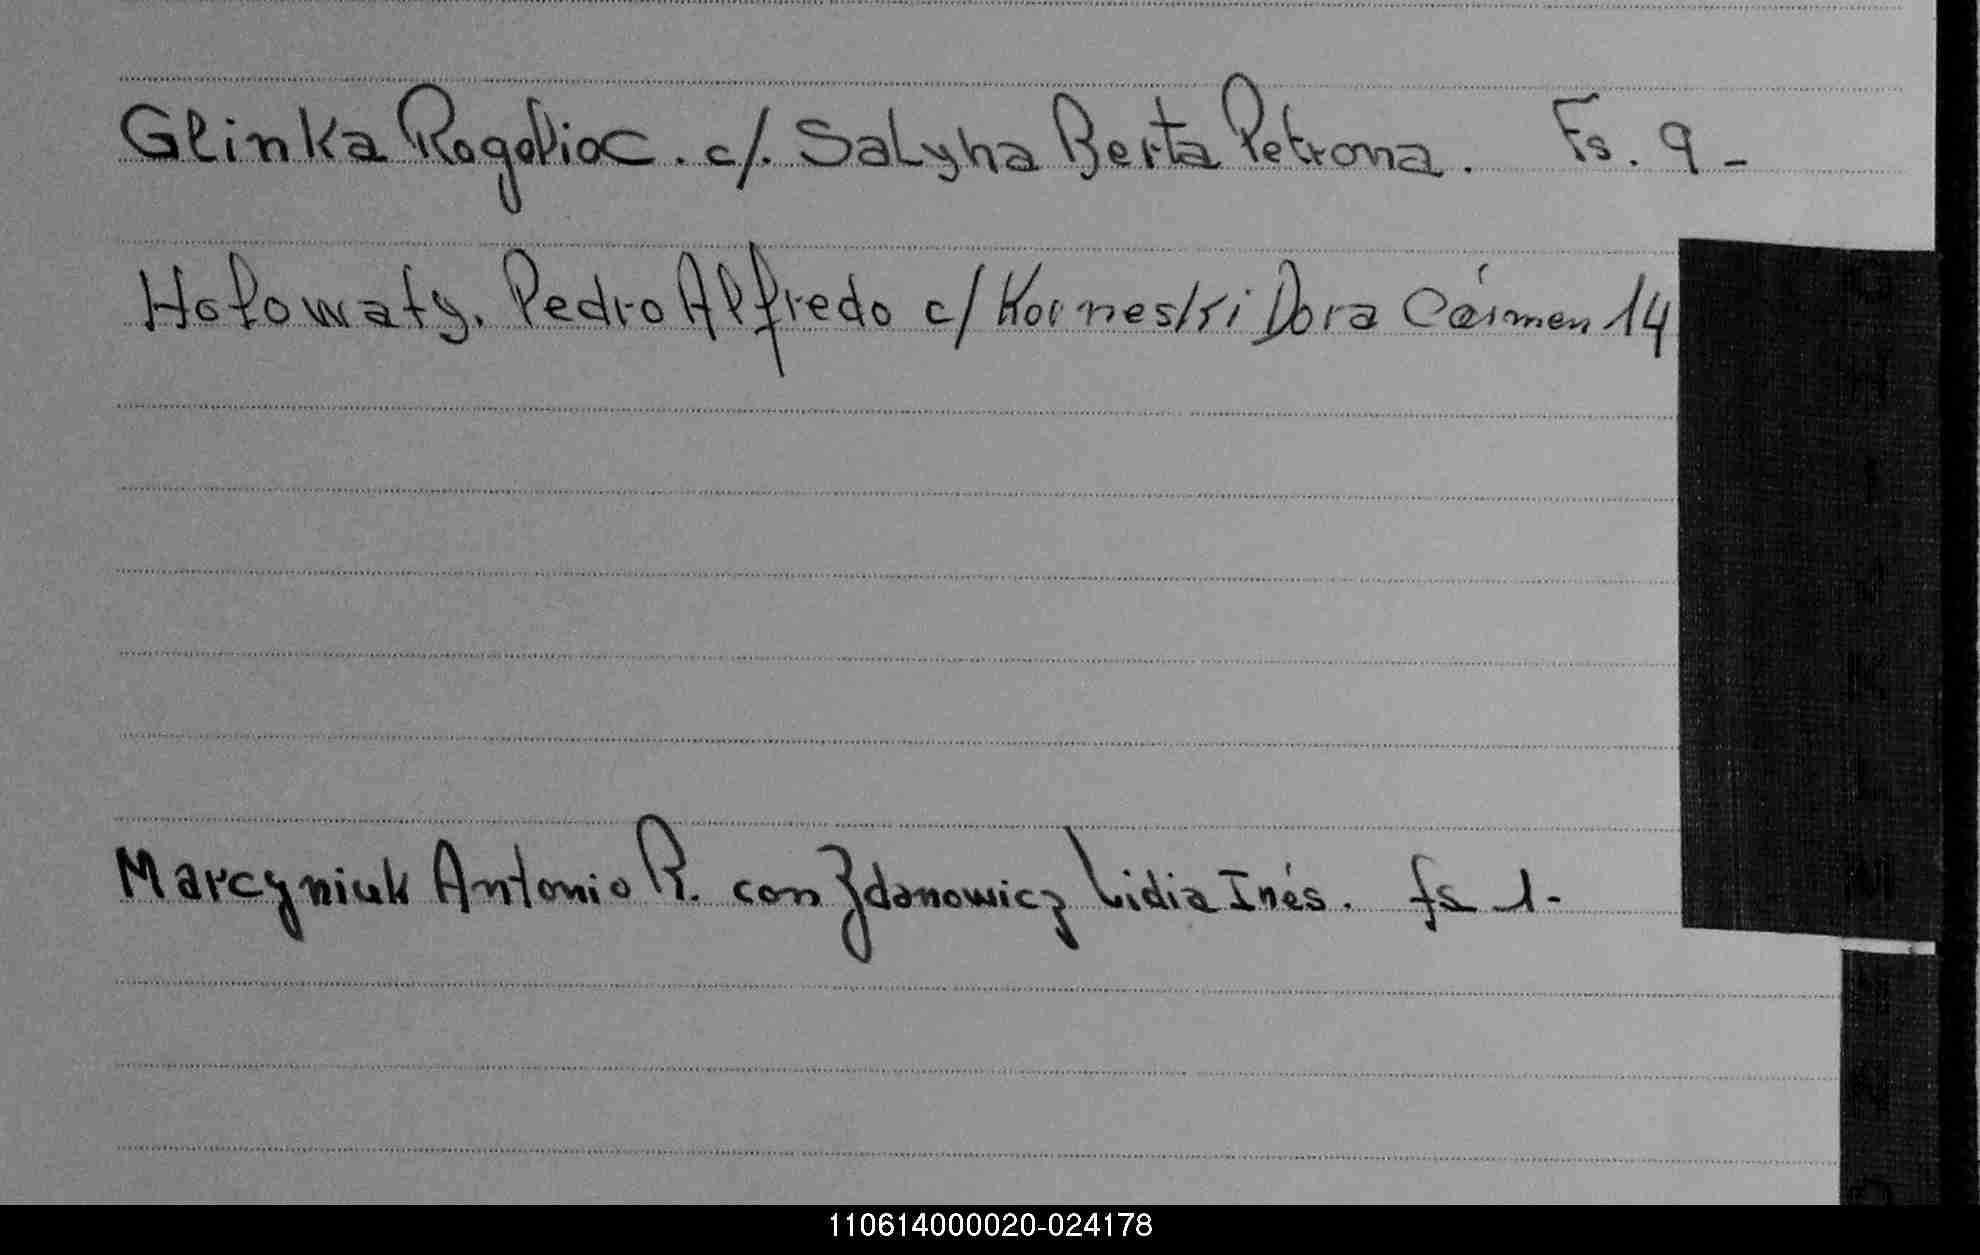 Glinka Rogelio C. c/. Salyha Berta Petrona. Fs. 9 -
Holowaty, Pedro Alfredo c/ Korneski Dora Cármen 14
Marcyniuk Antonio R. con Zdanowicz Lidia Inés. fs 1-
110614000020-024178